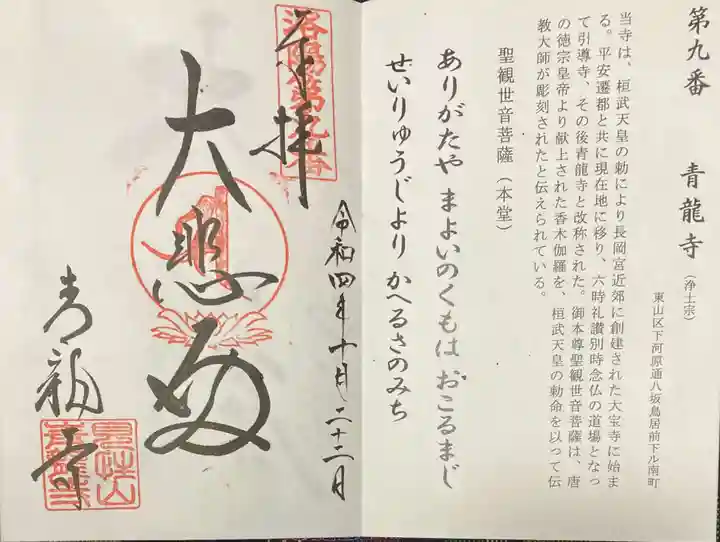 第九番　青龍寺（浄土宗）
東山区下河原通八坂鳥居前下ル南町
当寺は、桓武天皇の勅により長岡宮近郊に創建された大宝寺に始ま
る。平安遷都と共に現在地に移り、六時礼讃別時念仏の道場となっ
て引導寺、その後青龍寺と改称された。御本尊聖観世音菩薩は、唐
の徳宗皇帝より献上された香木伽羅を、桓武天皇の勅命を以って伝
教大師が彫刻されたと伝えられている。
聖観世音菩薩（本堂）
ありがたや まよいのくもは おこるまじ
せいりゅうじより かへるさのみち
奉拝
洛陽第九番
令和四年十月二十二月
大悲殿
青龍寺